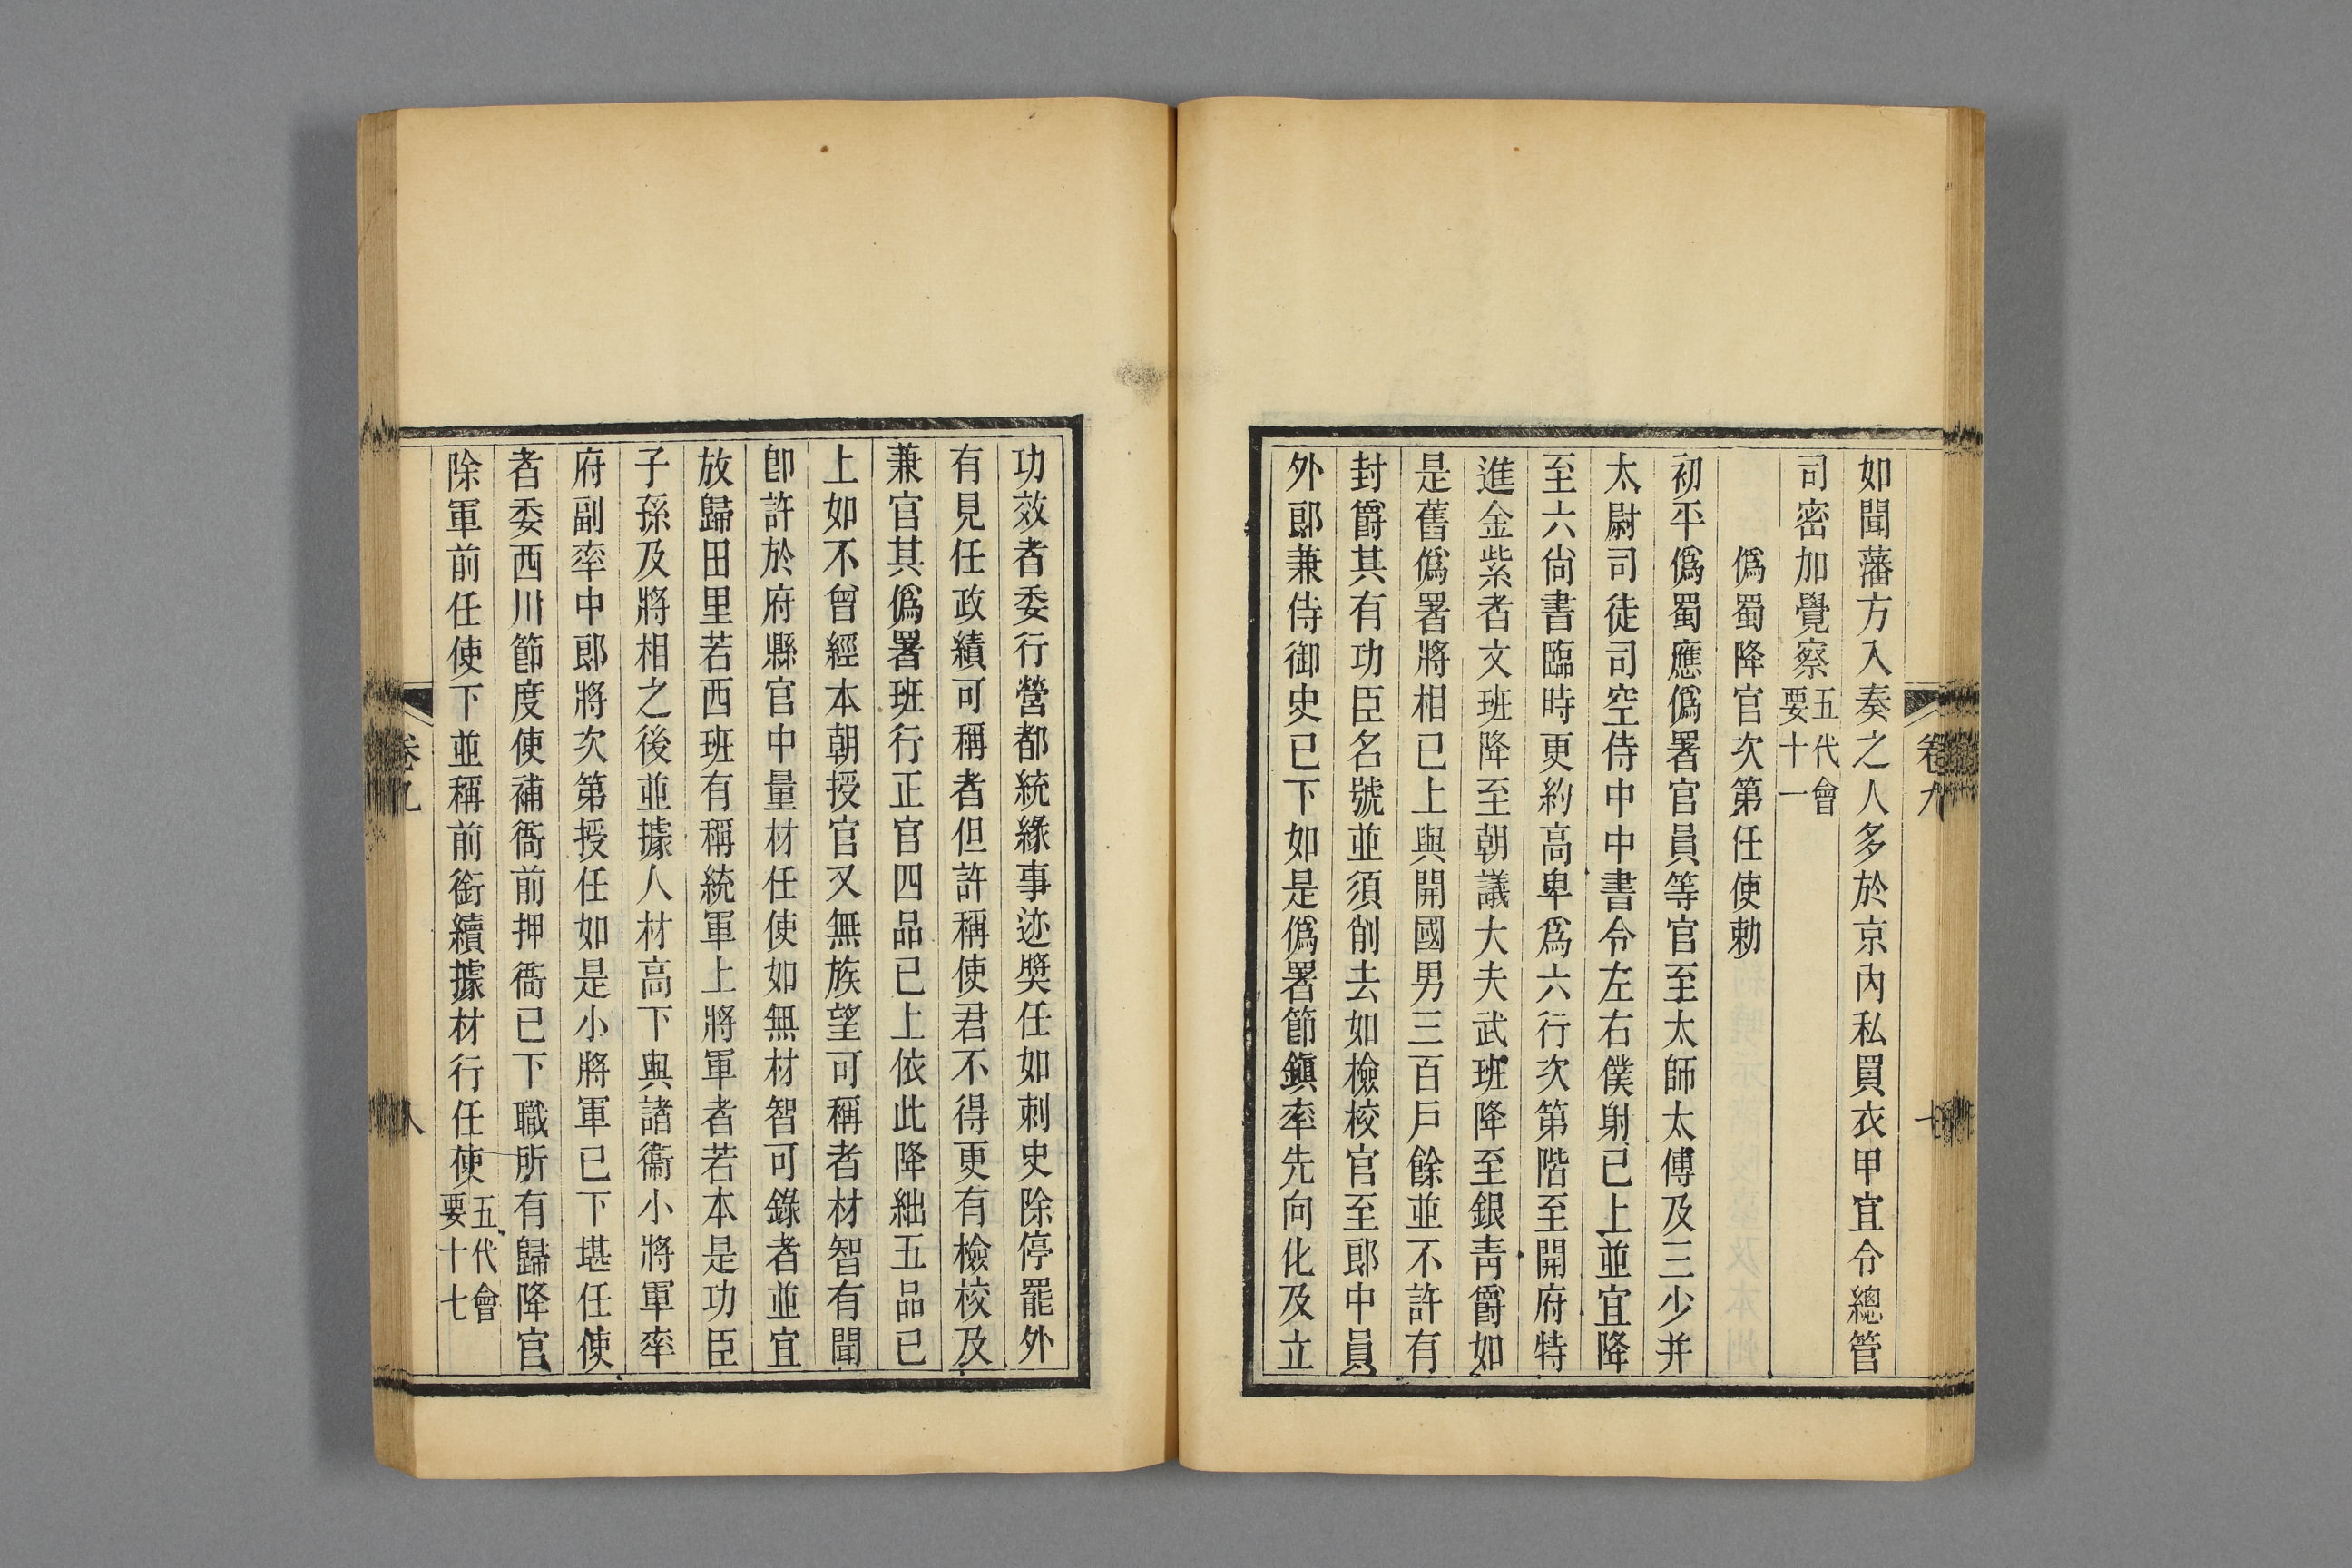 卷九
七
如聞藩方入奏之人多於京內私買衣甲宜令總管
司密加覺察五代會要十一
僞蜀降官次第任使勅
初平僞蜀應僞署官員等官至太師太傅及三少并
太尉司徒司空侍中中書令左右僕射已上並宜降
至六尙書臨時更約高卑爲六行次第階至開府特
進金紫者文班降至朝議大夫武班降至銀靑爵如
是舊僞署將相已上與開國男三百戶餘並不許有
封爵其有功臣名號並須削去如檢校官至郎中員
外郎兼侍御史已下如是僞署節鎭率先向化及立
功效者委行營都統緣事迹奬任如刺史除停罷外
有見任政績可稱者但許稱使君不得更有檢校及
兼官其僞署班行正官四品已上依此降絀五品已
上如不曾經本朝授官又無族望可稱者材智有聞
卽許於府縣官中量材任使如無材智可錄者並宜
放歸田里若西班有稱統軍上將軍者若本是功臣
子孫及將相之後並據人材高下與諸衞小將軍率
府副率中郎將次第授任如是小將軍已下堪任使
者委西川節度使補衙前押衙已下職所有歸降官
除軍前任使下並稱前銜續據材行任使五代會要十七
卷九
八